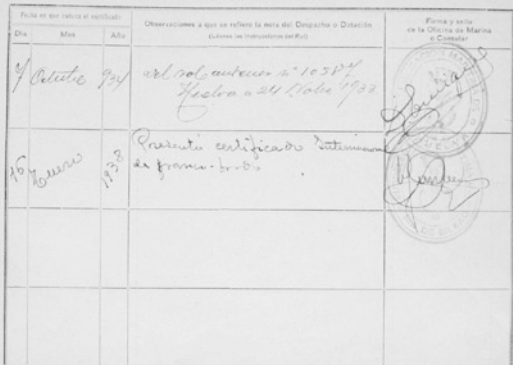 Fecha en que caduca el certificado
Observaciones a que se refiere la nota del Despacho o Dotación
(Léanse las instrucciones del Rol)
Firma y sello
de la Oficina de Marina
o Consular
Día Mes Año
9 Octubre 934
del rol anterior nº 10587
Huelva a 24 1933
16 Enero 1938
Presentó certificado
de franco-bordo
HUELVA